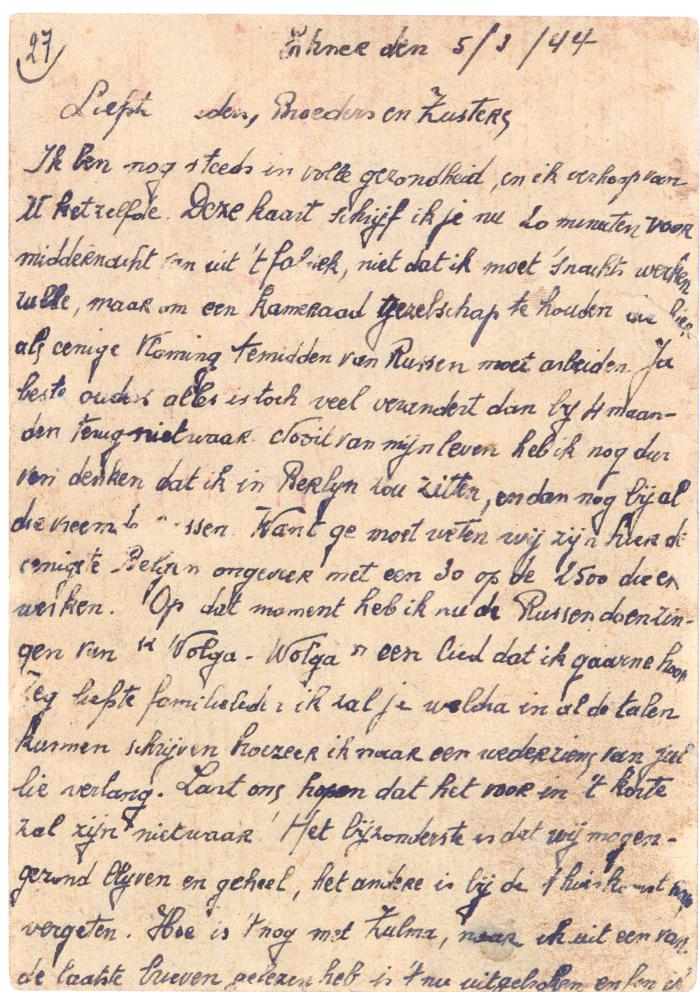 27
den 5/3/44
Liefste Broeders en Zusters
Ik ben nog steeds in volle gezondheid, en ik verhoop van
U hetzelfde. Deze kaart schrijf ik je nu 20 minuten voor
middernacht van uit 't fabriek, niet dat ik moet 'snachts werken
zulle, maar om een kameraad gezelschap te houden die hier
als eenige Vlaming temidden van Russen moet arbeiden. Ja
beste ouders alles is toch veel verandert dan bij 4 maan-
den terug nietwaar. Nooit van mijn leven heb ik nog dur
ven denken dat ik in Berlyn zou zitten, en dan nog bij al
die vreemde Russen. Want ge moet weten wij zijn hier de
eenigste Belgen ongeveer met een 30 op de 2500 die er
werken. Op dat moment heb ik nu de Russen doen zin-
gen van "Wolga - Wolga" een lied dat ik gaarne hoor
Zeg liefste familieleden ik zal je weldra in al de talen
kunnen schrijven hoezeer ik naar een wederziens van jul
lie verlang. Laat ons hopen dat het voor in 't korte
zal zijn nietwaar! Het bijzonderste is dat wij mogen-
gezond blyven en geheel, het andere is bij de thuiskomst
vergeten. Hoe is 't nog met Zulma, naar ik uit een van
de laatste brieven gelezen heb is 't nu uitgesproken en ben ik